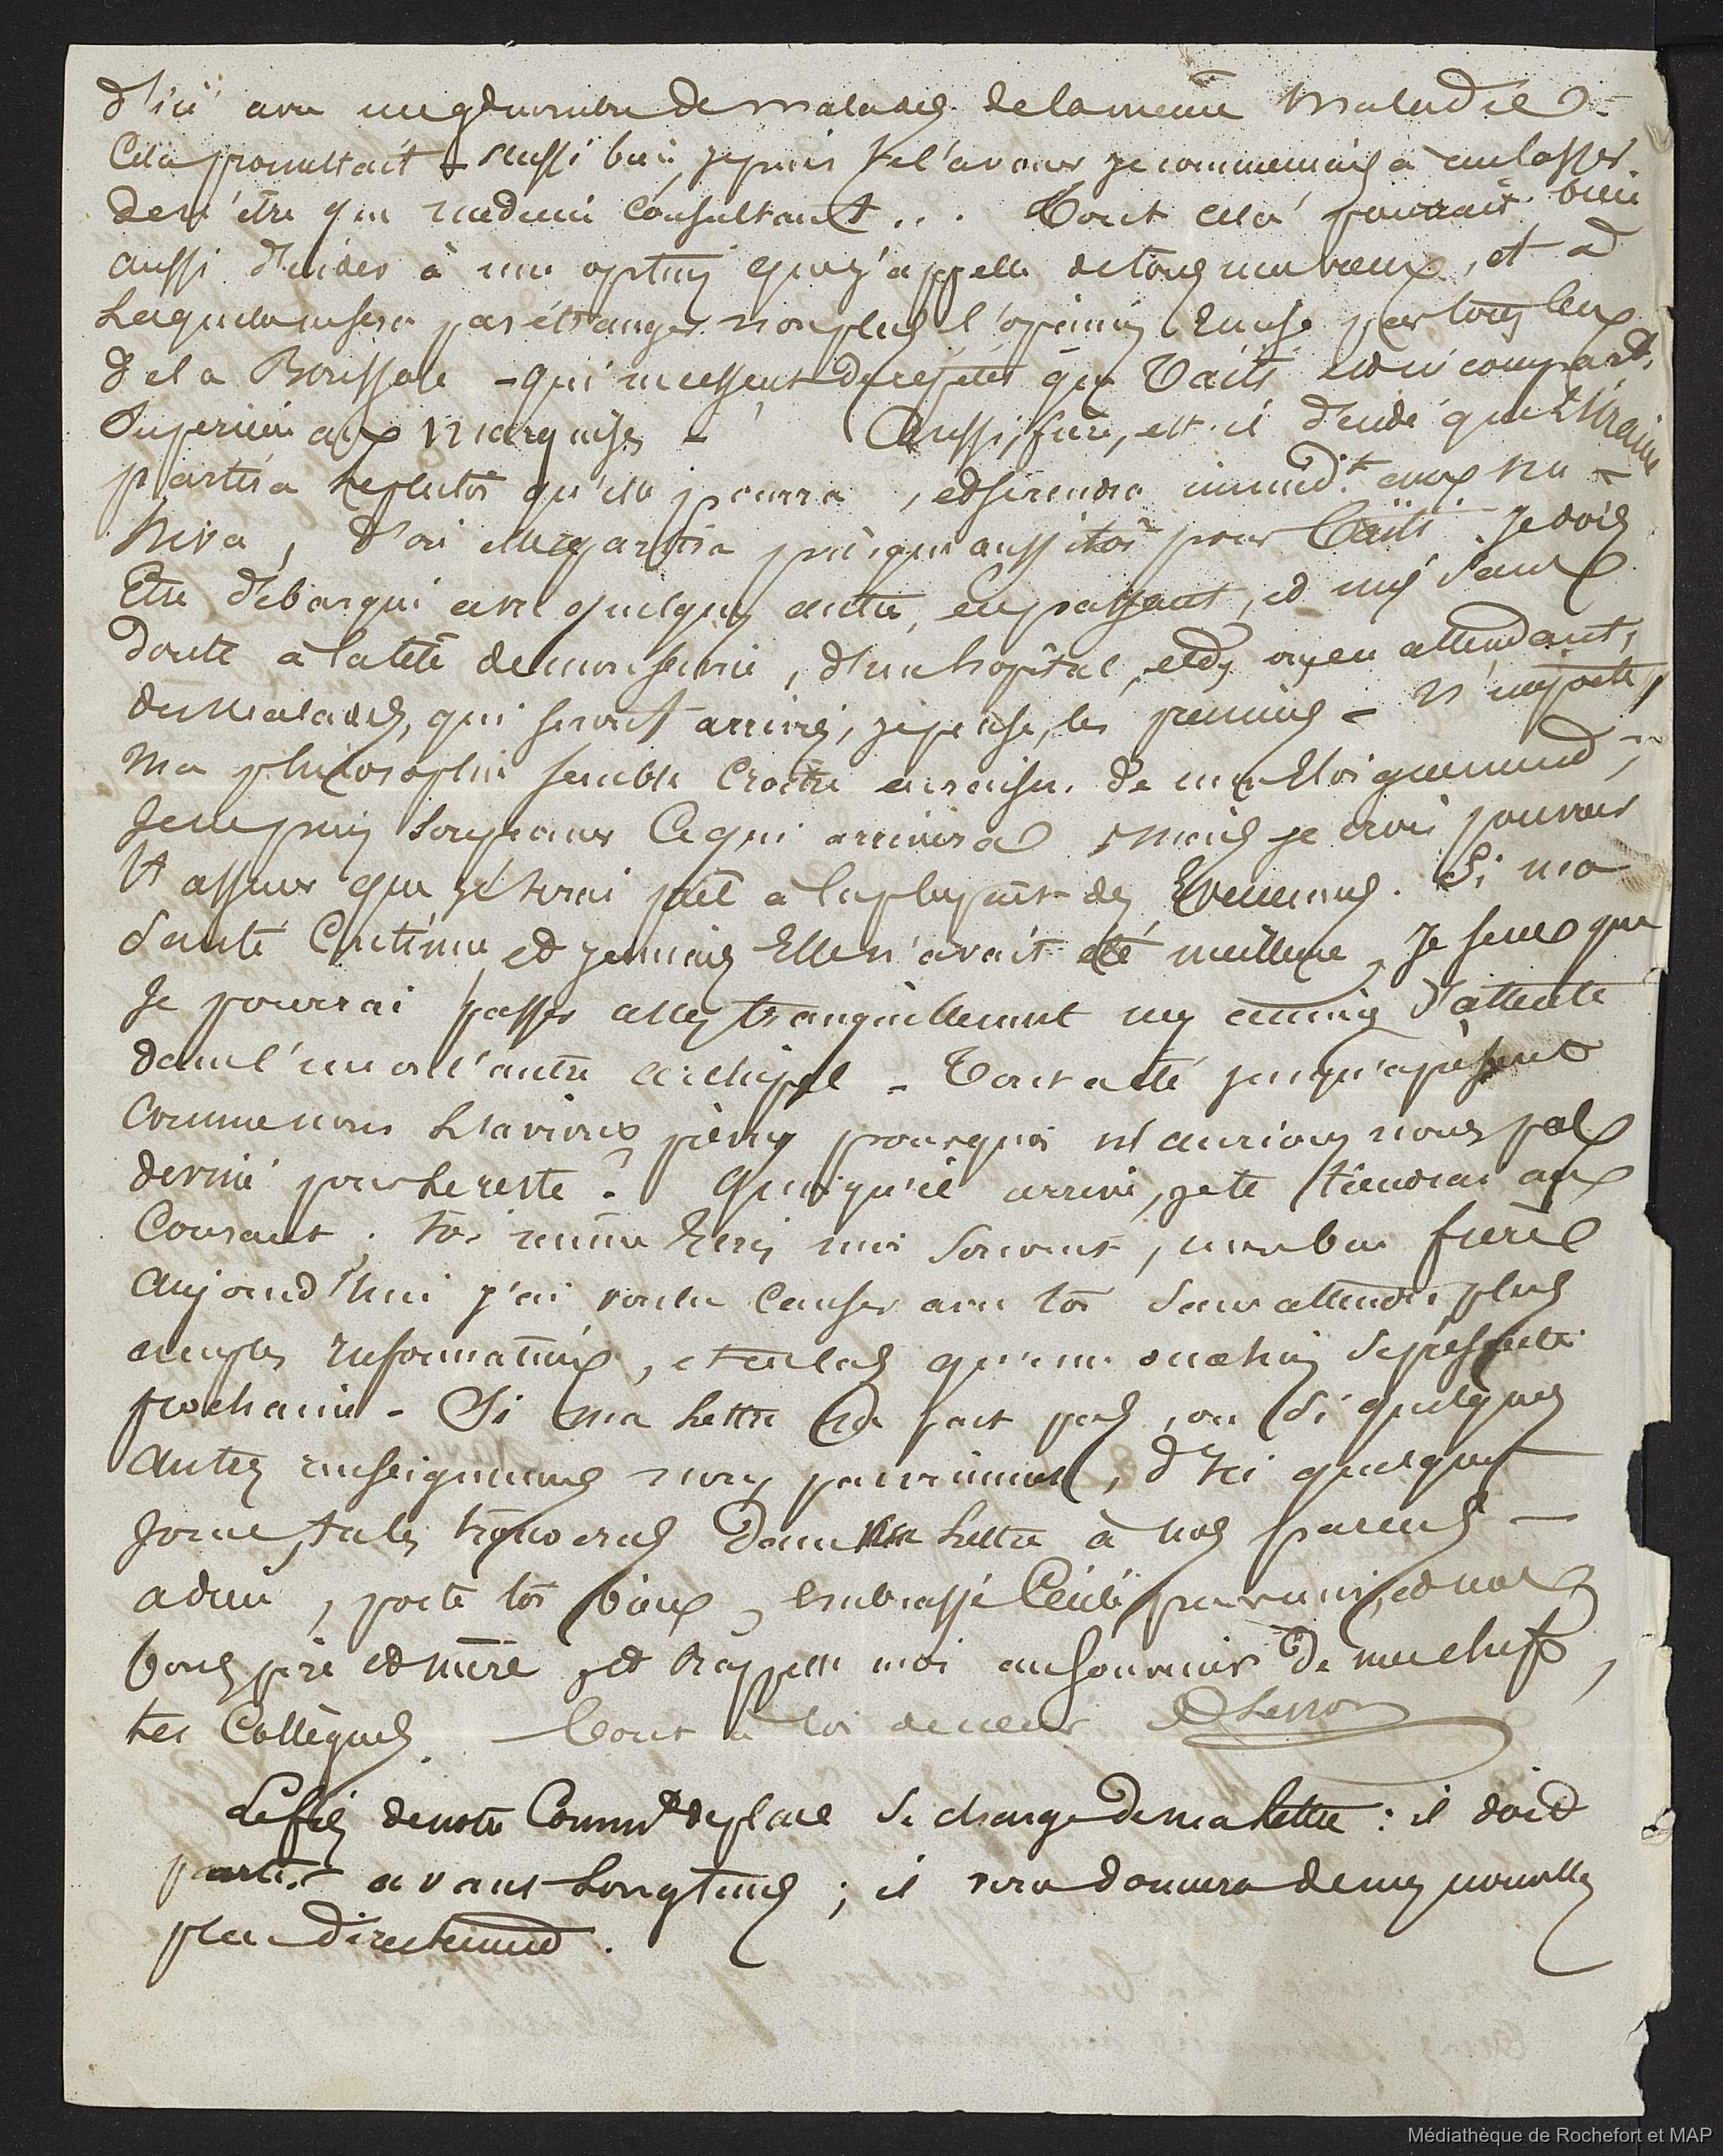 d'ici avec un gd nombre de malades de la même maladie.
Cela promettait - aussi bien, je puis te l'avouer je commençais à me lasser
de n'être que médecin consultant... Tout cela pourrait bien
aussi d'aider à une option que j'appelle de tous mes vœux, et à
laquelle ne sera pas étranger non plus l'opinion émise par tous ceux
de la Boussole - qui ne cessent de répéter que Taïti est incompart
Supérieur aux Marquises - Aussi, frère, est-il décidé que l'Uranie
partira le plutôt qu'elle pourra, et se rendra immédt aux Nu-
hiva, d'où elle repartira presque aussitôt pour Taïti. Je dois
Etre débarqué avec quelques autres, en passant, et mis sans
doute à la tête de mon service, d'un hôpital, et en attendant,
des malades, qui seront arrivés, je pense, les premiers - N'importe,
ma philosophie semble croître en raison de mon Eloignement,
Je ne puis soupçonner ce qui arrivera, mais je crois pouvoir
t'assurer que je serai prêt à la plupart des Evenemens. Si ma
Santé Continue, et jamais Elle n'avait été meilleure, je sens que
Je pourrai passer assez tranquillement mes années d'attente
dans l'un ou l'autre archipel - Tout a été jusqu'à présent
comme nous l'avions prévu pourquoi n'aurions nous pas
deviné pour le reste? Quoiqu'il arrive, je te tiendrai au
Courant; toi même Ecris moi souvent, mon bon frère
Aujourd'hui j'ai voulu causer avec toi sans attendre plus
amples informations, et en cas qu'une occasion se présente
prochaine - Si ma lettre ne part pas, ou si quelques
autres renseignemens nous parviennent, d'Ici quelques
Jours, tu les trouveras dans une lettre à nos parens -
adieu, porte toi bien, embrasse Cécile pour moi, et nos
bons père et mère, et rappelle moi au souvenir de mes chefs,
tes Collègues. Tout à toi de cœur A Lesson
Le fils de notre Commt de place se charge de ma lettre: il doit
partir avant longtems; il vous donnera de mes nouvelles
plus directement.
Médiathèque de Rochefort et MAP